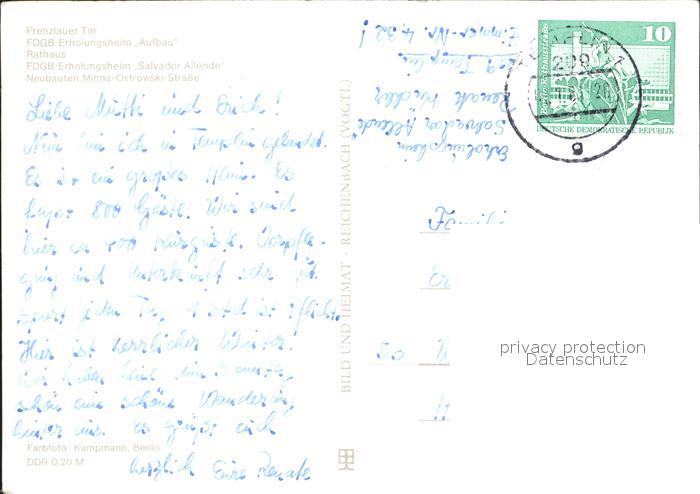 Prenzlauer Tor
FDGB-Erholungsheim „Aufbau"
Rathaus
FDGB-Erholungsheim „Salvador Allende"
Neubauten Minna-Ostrowski-Straße
Liebe Mutti und Erich!
Nun bin ich in Templin gelandet.
Es ist ein großes Heim. Es
800 Gäste. Wir sind
hier ca 400 Kurgäste. Verpfle-
gung und Unterkunft sehr gut.
Sport jeden Tag 1 Std ist Pflicht.
Hier ist herrlicher Winter.
Wir haben heute am Sonntag
schon eine schöne Wanderung
hinter uns. Es grüßt euch
herzlich Eure Renate
Farbfoto: Kampmann, Berlin
DDR 0,20 M
BILD UND HEIMAT · REICHENBACH (VOGTL)
Erholungsheim
Salvador Allende
Renate
209 Templin
Zimmer-Nr. 432!
10
DEUTSCHE DEMOKRATISCHE REPUBLIK
TEMPLIN 1
209
g
privacy protection
Datenschutz